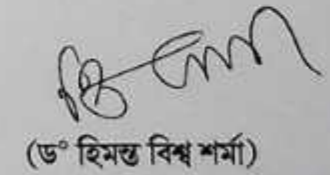 (ড° হিমন্ত বিশ্ব শৰ্মা)